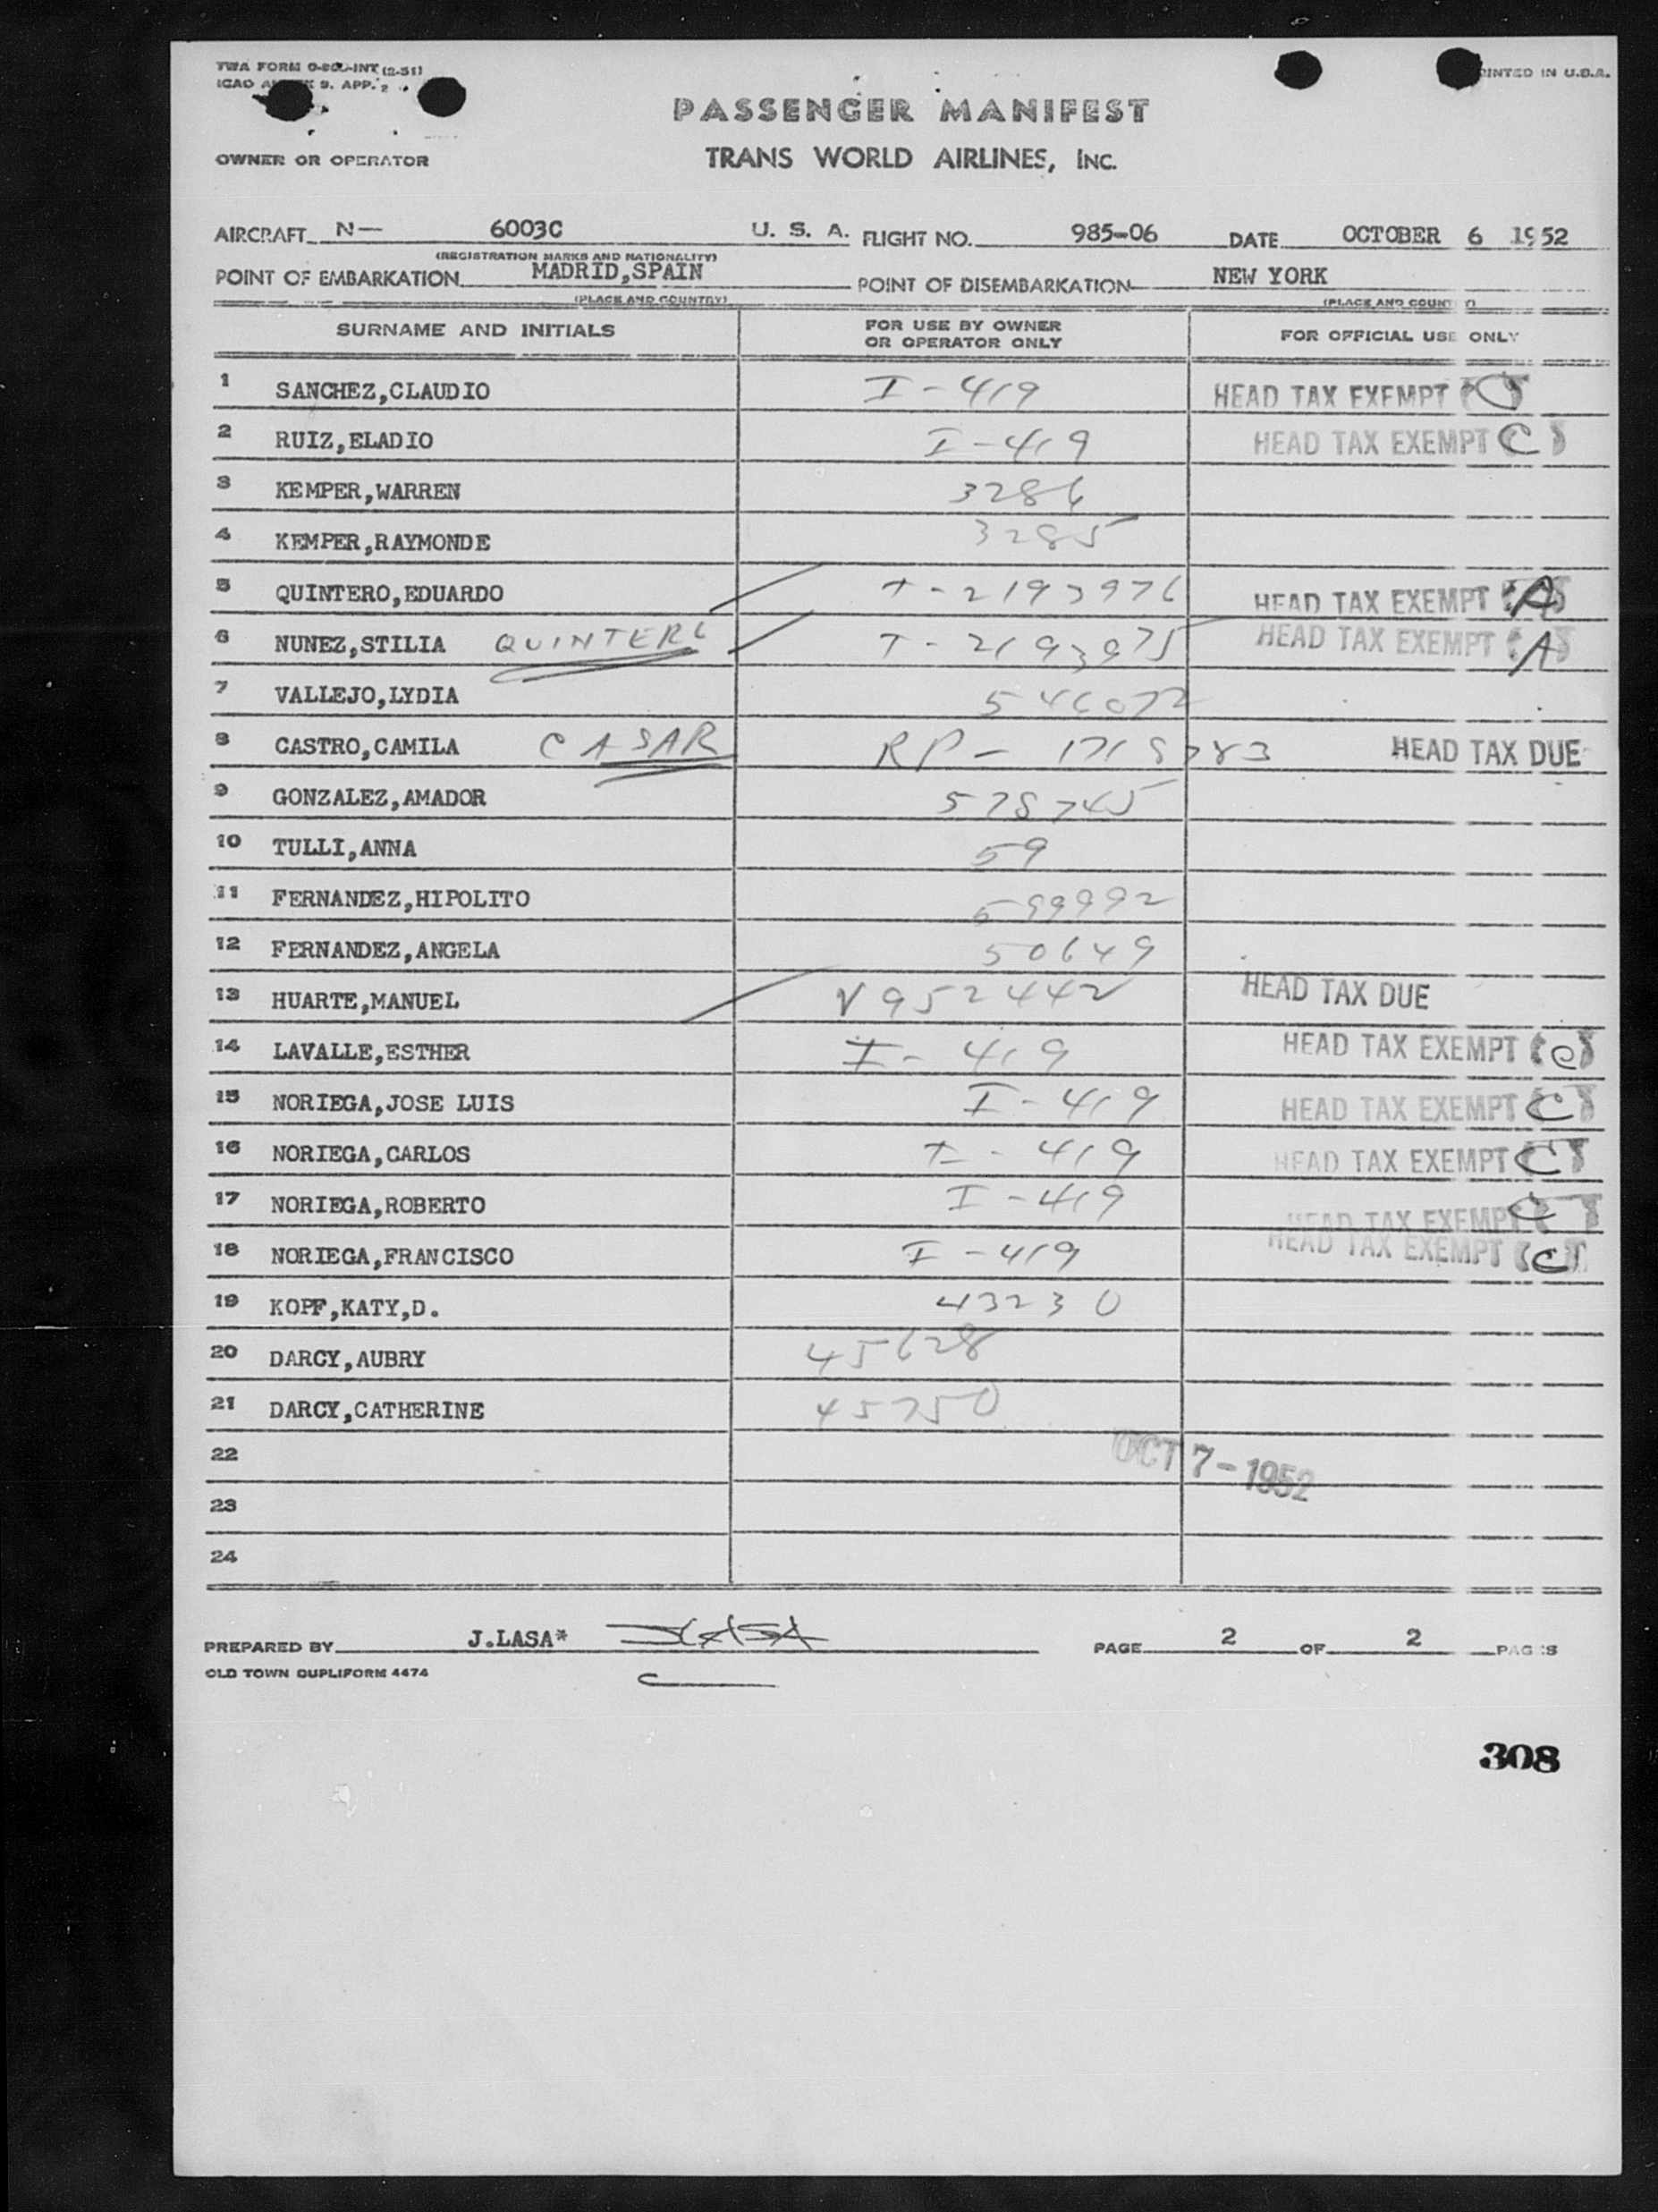 TWA FORM O-800-INT (2-51)
ICAO 9. APP. 2
PRINTED IN U.S.A.
PASSENGER MANIFEST
OWNER OR OPERATOR TRANS WORLD AIRLINES, INC.
AIRCRAFT N— 6003C U. S. A. FLIGHT NO. 985-06 DATE OCTOBER 6 1952
(REGISTRATION MARKS AND NATIONALITY)
POINT OF EMBARKATION MADRID,SPAIN POINT OF DISEMBARKATION NEW YORK
(PLACE AND COUNTRY) (PLACE AND COUNTRY)
SURNAME AND INITIALS FOR USE BY OWNER OR OPERATOR ONLY FOR OFFICIAL USE ONLY
1 SANCHEZ,CLAUDIO I-419 HEAD TAX EXEMPT C
2 RUIZ,ELADIO I-419 HEAD TAX EXEMPT C
3 KEMPER,WARREN 3286
4 KEMPER,RAYMONDE 3285
5 QUINTERO,EDUARDO T-2193976 HEAD TAX EXEMPT A
6 NUNEZ,STILIA QUINTERO T-2193975 HEAD TAX EXEMPT A
7 VALLEJO,LYDIA 546072
8 CASTRO,CAMILA CASAR RP- HEAD TAX DUE
9 GONZALEZ,AMADOR 578745
10 TULLI,ANNA 59
11 FERNANDEZ,HIPOLITO 599992
12 FERNANDEZ,ANGELA 50649
13 HUARTE,MANUEL V952442 HEAD TAX DUE
14 LAVALLE,ESTHER I-419 HEAD TAX EXEMPT C
15 NORIEGA,JOSE LUIS I-419 HEAD TAX EXEMPT C
16 NORIEGA,CARLOS I-419 HEAD TAX EXEMPT C
17 NORIEGA,ROBERTO I-419 HEAD TAX EXEMPT C
18 NORIEGA,FRANCISCO I-419 HEAD TAX EXEMPT C
19 KOPF,KATY,D. 43230
20 DARCY,AUBRY 45628
21 DARCY,CATHERINE 45750
22
OCT 7-1952
23
24
PREPARED BY J.LASA* JLASA PAGE 2 OF 2 PAGES
OLD TOWN DUPLIFORM 4474
308